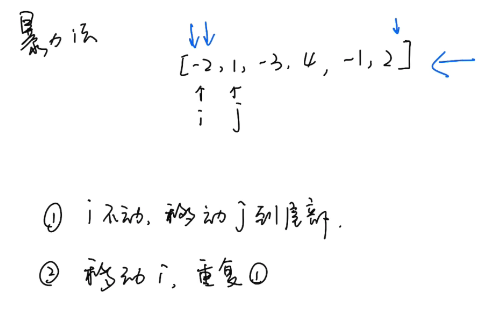 暴力法
[-2, 1, -3, 4, -1, 2]
i j
① i不动, 移动j到底部.
② 移动i, 重复①